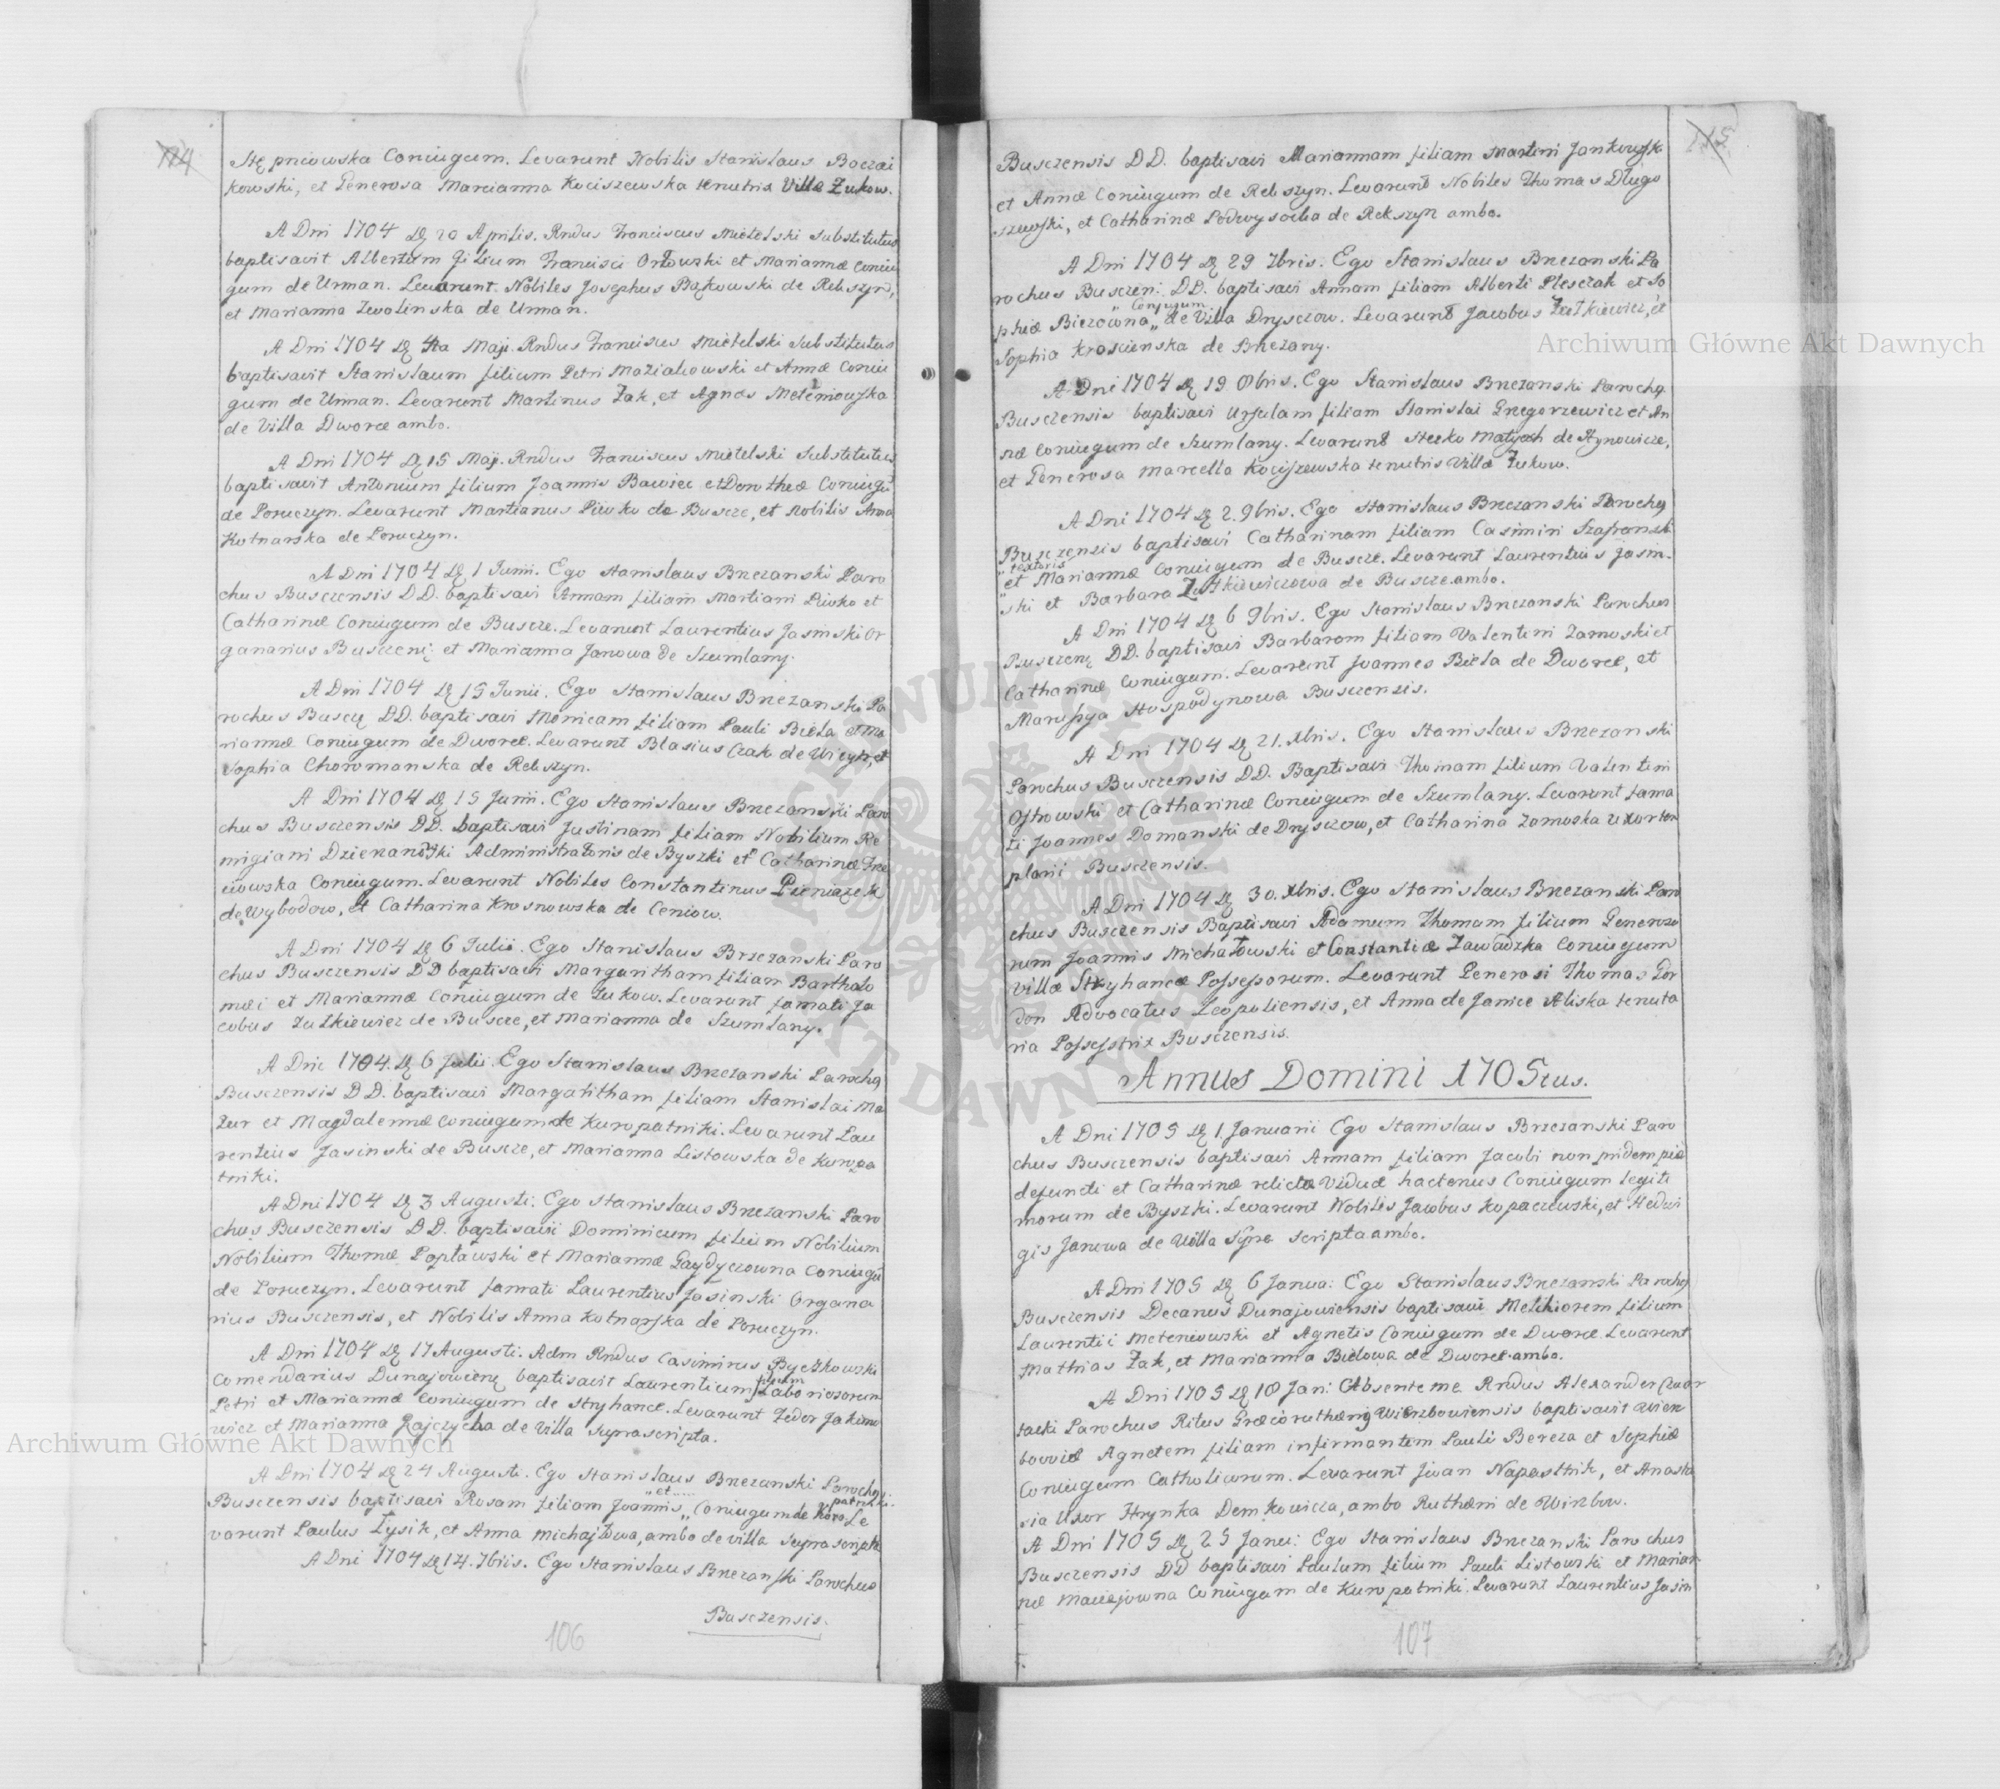 114
Stępniowska Coniugum. Levarunt Nobilis Stanislaus Baczai
kowski, et Generosa Marianna Kociszewska tenutrix Villæ Żukow.
A Dni 1704 dię 20 Aprilis. Rndus Franciscus Mielelski Substitutus
baptisavit Albertum filium Francisci Orłowski et Mariannæ Coniu
gum de Urman. Levarunt Nobiles Josephus Bąkowski de Rekszyn,
et Marianna Zwolinska de Urman.
A Dni 1704 dię 4ta Maji. Rndus Franciscus Mielelski Substitutus
baptisavit Stanislaum filium Petri Maziakowski et Annæ Coniu
gum de Urman. Levarunt Martinus Żak, et Agnes Meteniowska
de Villa Dworce ambo.
A Dni 1704 dię 15 Maji. Rndus Franciscus Mielelski Substitutus
baptisavit Antonium filium Joannis Bawiec et Dorotheæ Coniugū
de Poruczyn. Levarunt Martianus Piwko de Buscze, et Nobilis Anna
Kotnarska de Poruczyn.
A Dni 1704 dię 1 Junii. Ego Stanislaus Brzezanski Paro
chus Busczensis DD. baptisavi Annam filiam Martiani Piwko et
Catharinæ Coniugum de Buscze. Levarunt Laurentius Jasinski Or
ganarius Busczenię et Marianna Janowa de Szumlany.
A Dni 1704 dię 15 Junii. Ego Stanislaus Brzezanski Pa
rochus Buscze DD. baptisavi Monicam filiam Pauli Bieła et Ma
riannæ Coniugum de Dworce. Levarunt Blasius Czak de Wicyń, et
Sophia Choromanska de Rekszyn.
A Dni 1704 dię 15 Junii. Ego Stanislaus Brzezanski Paro
chus Busczensis DD. baptisavi Justinam filiam Nobilium Re
migiani Dzierzanowski Administratoris de Byszki et Catharinæ
Coniugum. Levarunt Nobiles Constantinus Pieniążek
de Wybodow, et Catharina Krosnowska de Ceniow.
A Dni 1704 dię 6 Julii. Ego Stanislaus Brzezanski Paro
chus Busczensis DD baptisavi Margaritham filiam Bartholo
mæi et Mariannæ Coniugum de Żukow. Levarunt famati Ja
cobus Żułkiewicz de Buscze, et Marianna de Szumlany.
A Dni 1704. dię 6 Julii. Ego Stanislaus Brzezanski Parochę
Busczensis DD. baptisavi Margaritham filiam Stanislai Ma
zur et Magdalennæ Coniugum de Kuropatniki. Levarunt Lau
rentius Jasinski de Buscze, et Marianna Listowska de Kuropa
tniki.
A Dni 1704 dię 3 Augusti. Ego Stanislaus Brzezanski Paro
chus Busczensis DD. baptisavi Dominicum filium Nobilium
Nobilium Thomæ Popławski et Mariannæ Gaydyczowna Coniugū
de Poruczyn. Levarunt famati Laurentius Jasinski Organa
rius Busczensis, et Nobilis Anna Kotnarska de Poruczyn.
A Dni 1704 dię 17 Augusti. Adm Rndus Casimirus Byczkowski
Comendarius Dunajowienę baptisavit Laurentium filium Laboriosorum
Petri et Mariannæ Coniugum de Stryhance. Levarunt Fedor Jakimo
wicz et Marianna Rajczycha de Villa Suprascripta.
A Dni 1704 dię 24 Augusti. Ego Stanislaus Brzezanski Parochę
Busczensis baptisavi Rosam filiam Joannis „et..... „ Coniugum de Kuropatniki. Le
varunt Paulus Łysik, et Anna Michajłowa, ambo de villa Suprascripta
A Dni 1704 dię 14. 7bris. Ego Stanislaus Brzezanski Parochus
Busczensis.
106
115
Busczensis DD. baptisavi Mariannam filiam Martini Jankowski
et Annæ Coniugum de Rekszyn. Levarunt Nobiles Thomas Długo
szewski, et Catharina Podwysocka de Rekszyn ambo.
A Dni 1704 dię 29 7bris. Ego Stanislaus Brzezanski Pa
rochus Busczen: DD. baptisavi Annam filiam Alberti Plesczak et So
phiæ Bierowna „Conjugum„ de Villa Drysczow. Levarunt Jacobus Żułkiewicz, et
Sophia Krościenska de Brzezany.
A Dni 1704 dię 19 8bris. Ego Stanislaus Brzezanski Parochę
Busczensis baptisavi Ursulam filiam Stanislai Grzegorzewicz et An
næ Coniugum de Szumlany. Levarunt Stecko Matyash de Hynowicze,
et Generosa Marcella Kociszewska tenutris Villæ Żukow.
A Dni 1704 dię 2. 9bris. Ego Stanislaus Brzezanski Parochę
Busczensis baptisavi Catharinam filiam Casimiri Szafranski
„textoris„ et Mariannæ Coniugum de Buscze. Levarunt Laurentius Jasin.
ski et Barbara Żułkiewiczowa de Buscze ambo.
A Dni 1704 dię 6 9bris. Ego Stanislaus Brzezanski Parochus
Busczenę DD. baptisavi Barbaram filiam Valentini Zamoski et
Catharinæ Coniugum. Levarunt Joannes Bieła de Dworce, et
Marusya Hospodynowa Busczensis.
A Dni 1704 dię 21. Xbris. Ego Stanislaus Brzezanski
Parochus Busczensis DD. Baptisavi Thomam filium Valentini
Ostrowski et Catharinæ Coniugum de Szumlany. Levarunt fama
ti Joannes Domanski de Drysczow, et Catharina Zamoska uxor tem
plarii Busczensis.
A Dni 1704 dię 30. Xbris. Ego Stanislaus Brzezanski Paro
chus Busczensis Baptisavi Adamum Thomam filium Generoso
rum Joannis Michałowski et Constantiæ Zawadzka Coniugum
villæ Stryhancæ Possessorum. Levarunt Generosi Thomas Gor
don Advocatus Leopoliensis, et Anna de Janice Aliska tenuta
ria Possestrix Busczensis.
Annus Domini 1705tus.
A Dni 1705 dię 1. Januarii Ego Stanislaus Brzezanski Paro
chus Busczensis baptisavi Annam filiam Jacobi non pridem piæ
defuncti et Catharinæ relicta Viduæ hactenus Coniugum legiti
morum de Byszki. Levarunt Nobiles Jacobus Kopaczewski, et Hedwi
gis Janowa de Villa Supra scripta ambo.
A Dni 1705 dię 6 Janua: Ego Stanislaus Brzezanski Parochę
Busczensis Decanus Dunajowiensis baptisavi Melchiorem filium
Laurentii Meteniowski et Agnetis Coniugum de Dworce Levarunt
Mathias Żak, et Marianna Biełowa de Dworce ambo.
A Dni 1705 dię 18 Jan: Absente me Rndus Alexander Czar
Parochus Ritus Græcoruthenę Wierzbowiensis baptisavit Wierz
boviæ Agnetem filiam infirmantem Pauli Bereza et Sophiæ
Coniugum Catholicorum. Levarunt Jwan Napastnik, et Anasta
sia Uxor Hrynka Demkowicza, ambo Rutheni de Wirzbow.
A Dni 1705 dię 25 Janu: Ego Stanislaus Brzezanski Parochus
Busczensis DD baptisavi Paulum filium Pauli Listowski et Marian
næ Maciejowna Coniugum de Kuropatniki. Levarunt Laurentius Jasin
107
Archiwum Główne Akt Dawnych
Archiwum Główne Akt Dawnych
ARCHIWUM GŁÓWNE AKT DAWNYCH